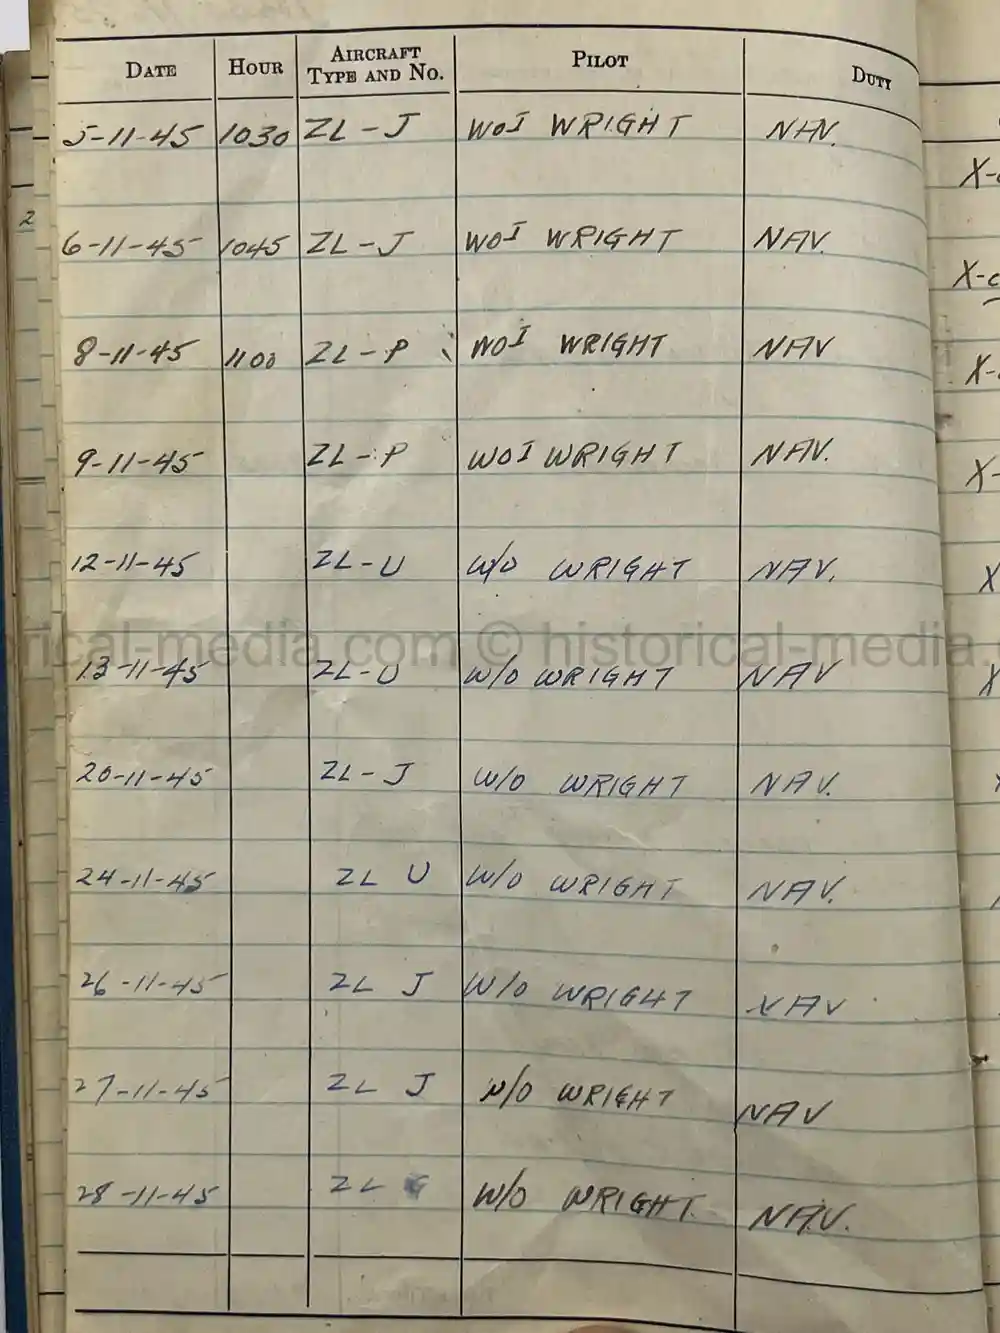 DATE HOUR AIRCRAFT TYPE AND NO. PILOT DUTY
5-11-45 1030 ZL-J WOI WRIGHT NAV.
X-
2
6-11-45 1045 ZL-J WOI WRIGHT NAV.
X-c
8-11-45 1100 ZL-P WOI WRIGHT NAV
X-
9-11-45 ZL-P WOI WRIGHT NAV.
X-
12-11-45 ZL-U W/O WRIGHT NAV.
X
orical-media.com © historical-media.
13-11-45 ZL-U W/O WRIGHT NAV
X
20-11-45 ZL-J W/O WRIGHT NAV.
24-11-45 ZL U W/O WRIGHT NAV.
26-11-45 ZL J W/O WRIGHT NAV
27-11-45 ZL J W/O WRIGHT NAV
28-11-45 ZL G W/O WRIGHT NAV.